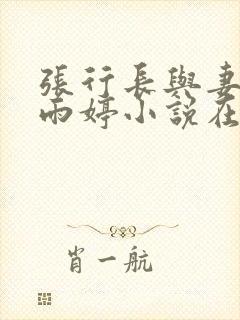 張行長與妻
雨婷小説在
肖一航